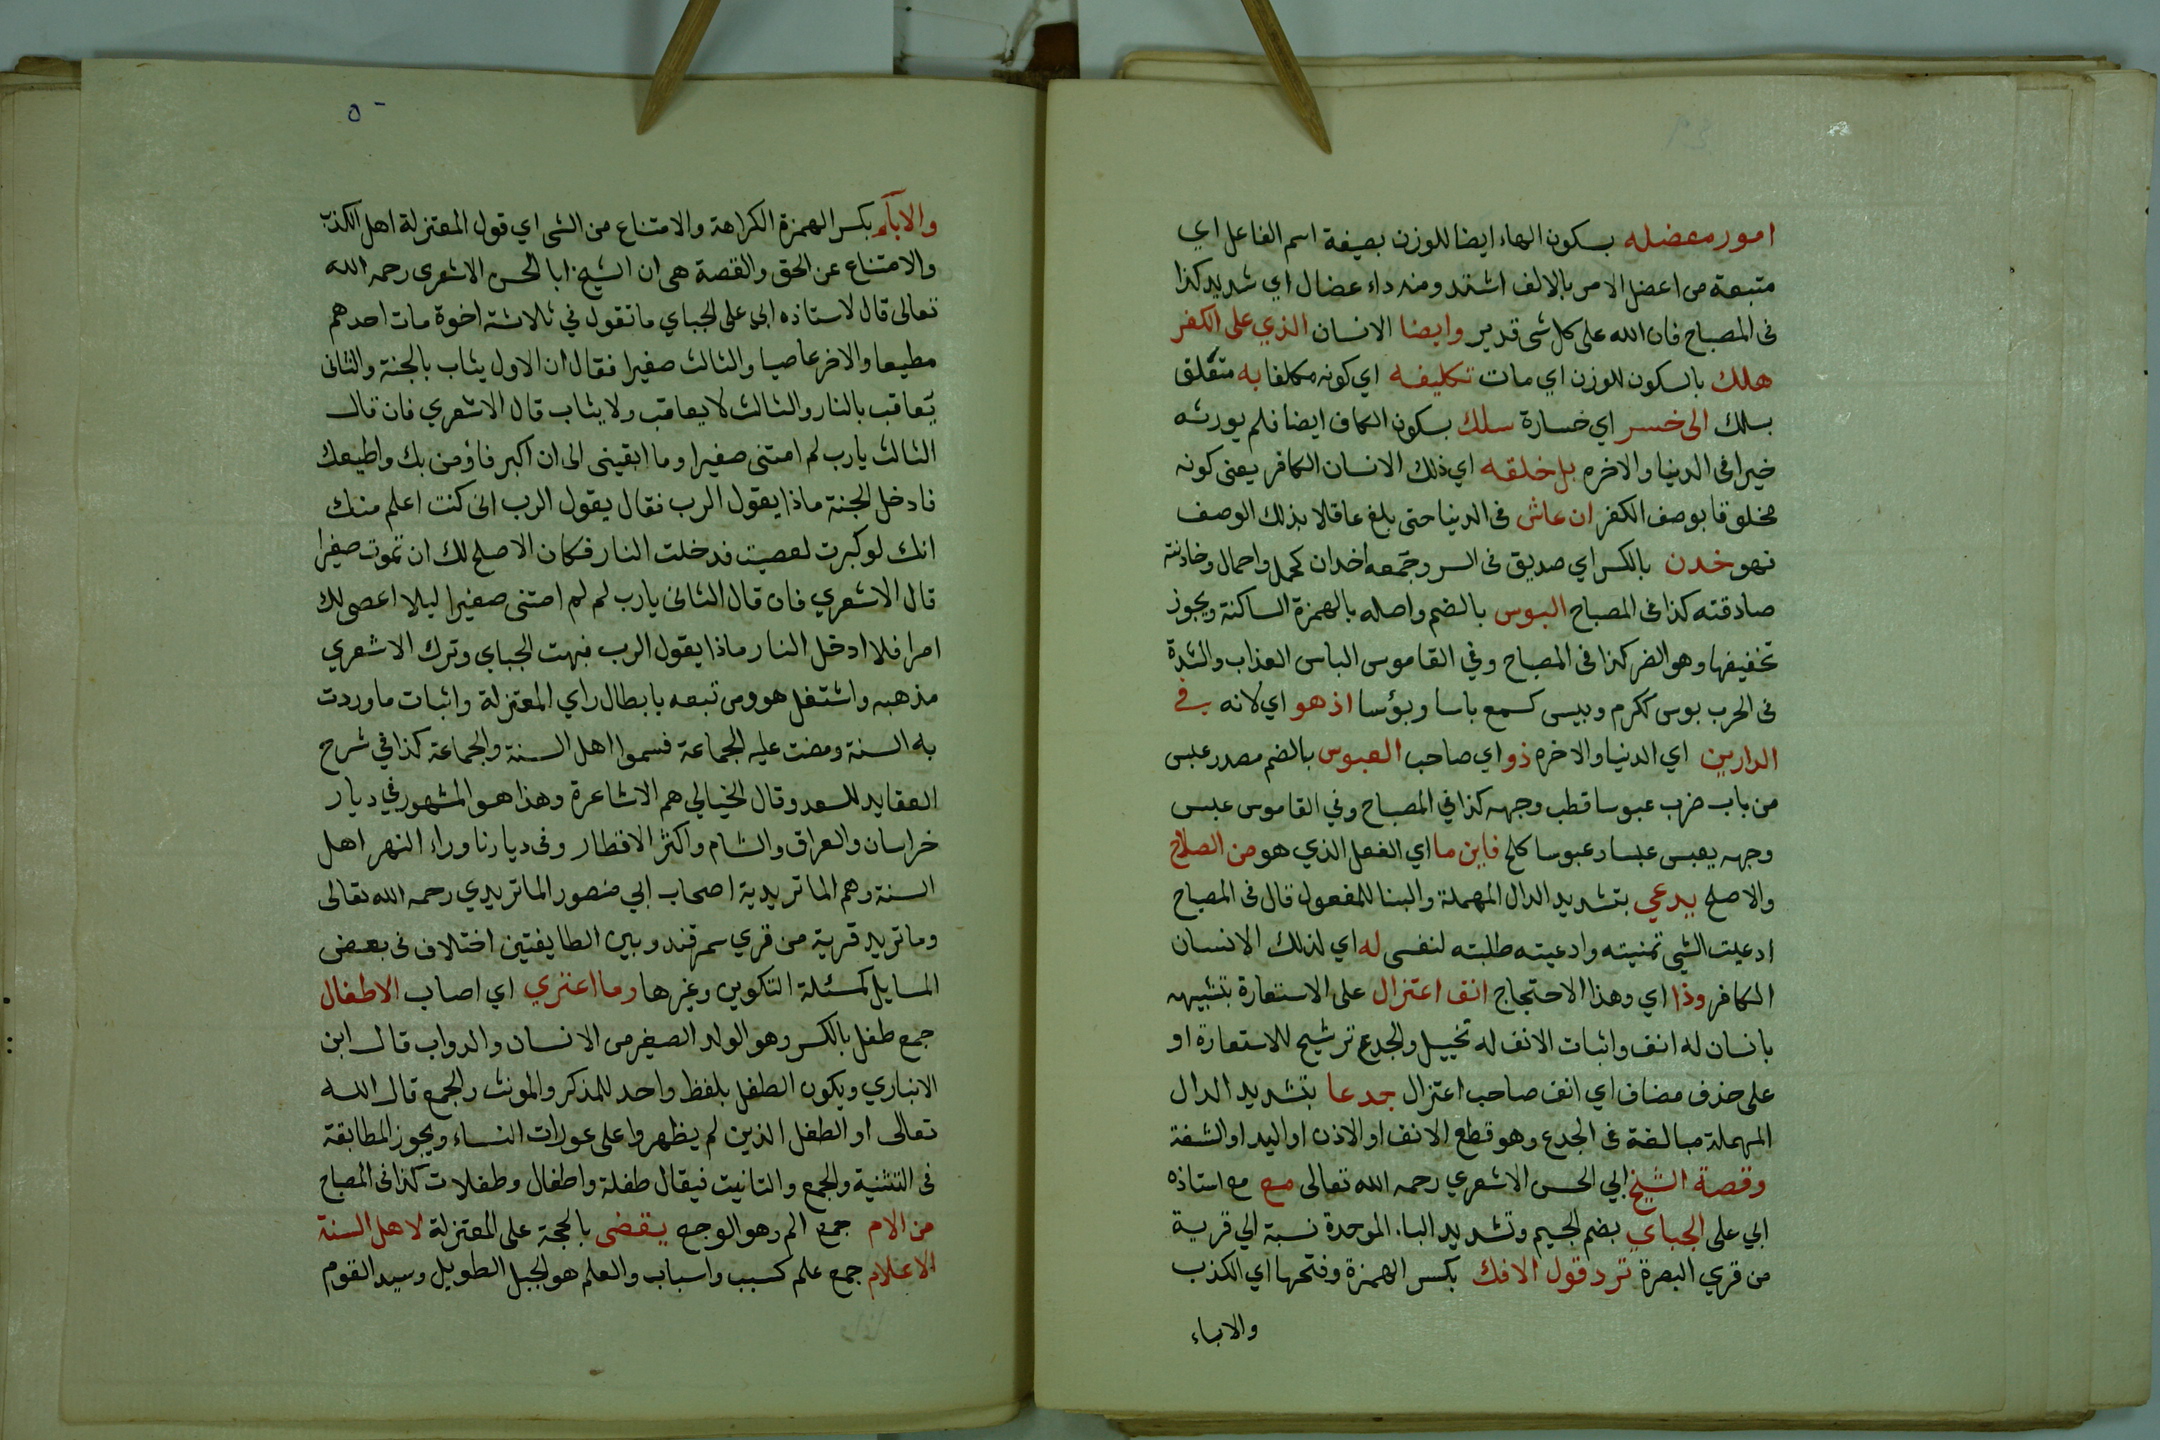 امور معضله بسكون الهاء ايضا للوزن بصيغة اسم الفاعل اي
متبعة من اعضل الامر بالالف اشتد ومنه داء عضال اي شديد كذا
فى المصباح فان الله على كل شى قدير وايضا الانسان الذي على الكفر
هلك بالسكون للوزن اي مات تكليفه اي كونه مكلفا به متعلق
بسلك الى خسر اي خسارة سلك بسكون الكاف ايضا فلم يورثه
خيرا فى الدنيا والاخره بل خلقه اي ذلك الانسان الكافر يعنى كونه
مخلوقا بوصف الكفر ان عاش فى الدنيا حتى بلغ عاقلا بذلك الوصف
فهو خدن بالكسر اي صديق فى السر وجمعه اخدان كحمل واحمال وخادنته
صادقته كذا فى المصباح البوس بالضم واصله بالهمزة الساكنة ويجوز
تخفيفها وهو الضر كذا فى المصباح وفي القاموس الباس العذاب والشدة
فى الحرب بوس ككرم وبيس كسمع باسا وبؤسا اذ هو اي لانه في
الدارين اي الدنيا والاخره ذو اي صاحب العبوس بالضم مصدر عبس
من باب ضرب عبوسا قطب وجهه كذا في المصباح وفي القاموس عبس
وجهه يعبس عبسا وعبوسا كلح فاين ما اي الفعل الذي هو من الصلاح
والاصلح يدعي بتشديد الدال المهملة والبنا للمفعول قال فى المصباح
ادعيت الشي تمنيته وادعيته طلبته لنفسى له اي لذلك الانسان
الكافر وذا اي وهذا الاحتجاج انف اعتزال على الاستعارة بتشبيهه
بانسان له انف واثبات الانف له تخييل والجدع ترشيح للاستعارة او
على حذف مضاف اي انف صاحب اعتزال جدعا بتشديد الدال
المهملة مبالغة فى الجدع وهو قطع الانف او الاذن او اليد او الشفة
وقصة الشيخ ابي الحسن الاشعري رحمه الله تعالى مع مع استاذه
ابي على الجباي بضم الجيم وتشديد البا. الموحدة نسبة الي قرية
من قري البصرة ترد قول الافك بكسر الهمزة وفتحها اي الكذب
والاباء
٥٠
والاباء بكسر الهمزة الكراهة والامتناع من الشى اي قول المعتزلة اهل الكذب
والامتناع عن الحق والقصة هى ان الشيخ ابا الحسن الاشعرى رحمه الله
تعالى قال لاستاذه ابى على الجباي ما تقول في ثلاثة اخوة مات احدهم
مطيعا والاخر عاصيا والثالث صغيرا فقال ان الاول يثاب بالجنة والثانى
يعاقب بالنار والثالث لا يعاقب ولا يثاب قال الاشعري فان قال
الثالث يارب لم امتنى صغيرا وما ابقيتنى الى ان اكبر فاؤمن بك واطيعك
فادخل الجنة ماذا يقول الرب فقال يقول الرب انى كنت اعلم منك
انك لو كبرت لعصيت فدخلت النار فكان الاصلح لك ان تموت صغيرا
قال الاشعري فان قال الثانى يارب لم لم امتنى صغيرا ليلا اعصى لك
امرا فلا ادخل النار ماذا يقول الرب فبهت الجباي وترك الاشعري
مذهبه واشتغل هو ومن تبعه بابطال راي المعتزلة واثبات ما وردت
به السنة ومضت عليه الجماعة فسموا اهل السنة والجماعة كذا في شرح
العقايد للسعد وقال الخيالي هم الاشاعرة وهذا هو المشهور في ديار
خراسان والعراق والشام واكثر الاقطار وفى ديارنا وراء النهر اهل
السنة وهم الماتريدية اصحاب ابي منصور الماتريدي رحمه الله تعالى
وماتريد قرية من قري سمرقند وبين الطايفتين اختلاف فى بعض
المسايل كمسئلة التكوين وغيرها وما اعتري اي اصاب الاطفال
جمع طفل بالكسر وهو الولد الصغير من الانسان والدواب قال ابن
الانباري ويكون الطفل بلفظ واحد للمذكر والمونث والجمع قال الله
تعالى او الطفل الذين لم يظهروا على عورات النساء ويجوز المطابقة
فى التثنية والجمع والتانيث فيقال طفلة واطفال وطفلات كذا فى المصباح
من الام جمع الم وهو الوجع يقضى بالحجة على المعتزلة لاهل السنة
الاعلام جمع علم كسبب واسباب والعلم هو الجبل الطويل وسيد القوم